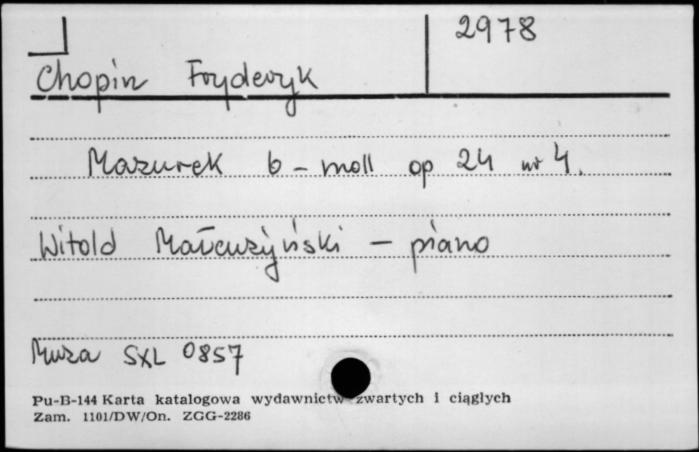 2978
Chopin Fryderyk
Mazurek b-moll op 24 nr 4.
Witold Małcużyński - piano
Muza SXL 0857
Pu-B-144 Karta katalogowa wydawnictw zwartych i ciągłych
Zam. 1101/DW/On. ZGG-2286